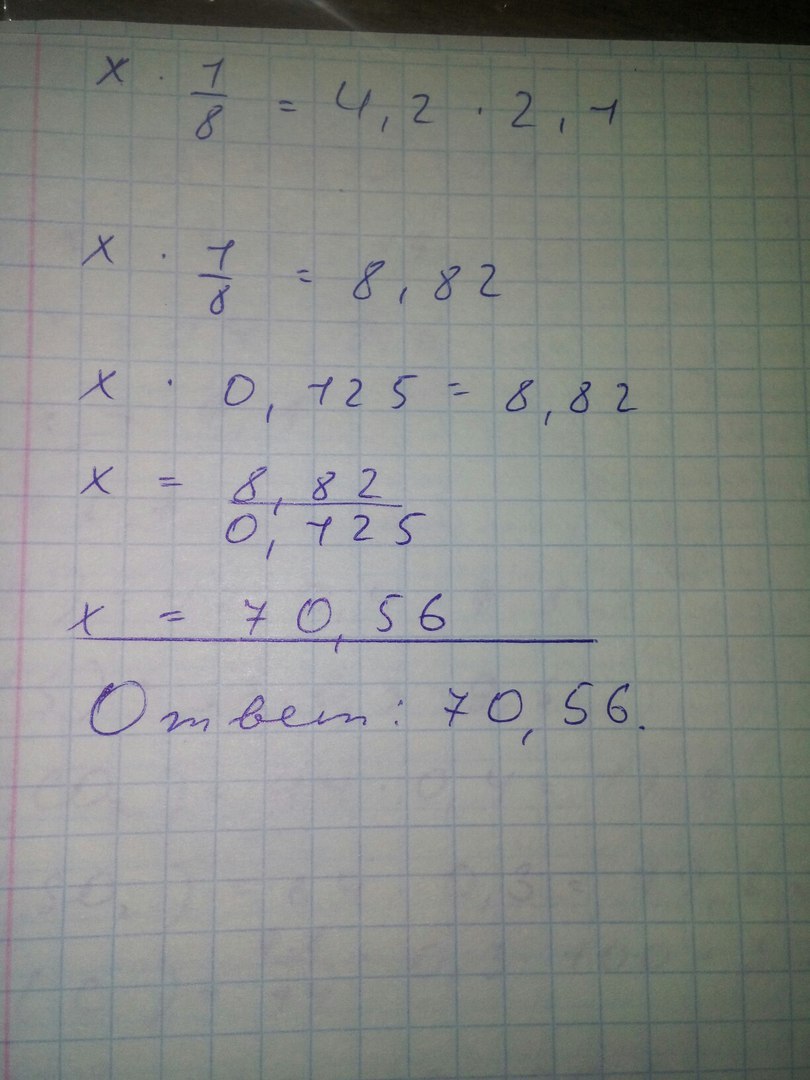 x · 1/8 = 4,2 · 2,1
x · 1/8 = 8,82
x · 0,125 = 8,82
x = 8,82/0,125
x = 70,56
Ответ: 70,56.